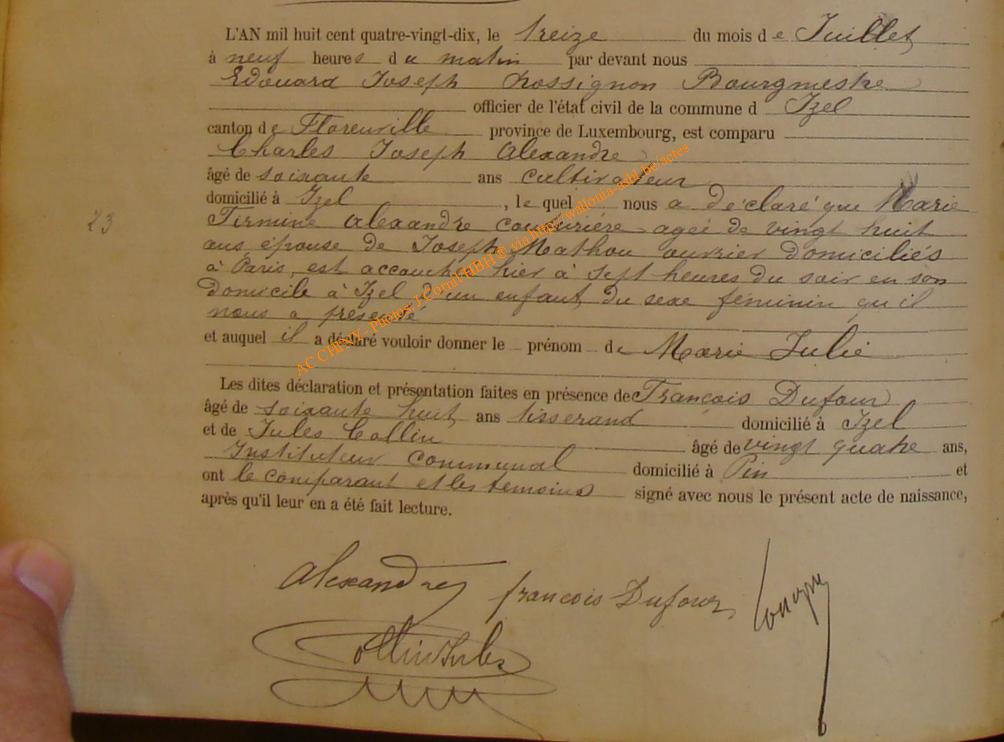 L'AN mil huit cent quatre-vingt-dix, le treize du mois de Juillet
à neuf heures du matin par devant nous
Edouard Joseph Rossignon Bourgmestre
officier de l'état civil de la commune d Izel
canton de Florenville province de Luxembourg, est comparu
Charles Joseph Alexandre
âgé de soixante ans cultivateur
domicilié à Izel, lequel nous a déclaré que Marie
Firmine Alexandre couturière agée de vingt huit
ans épouse de Joseph Mathou ouvrier domiciliés
à Paris, est accouchée hier à sept heures du soir en son
domicile à Izel d'un enfant du sexe féminin qu'il
nous a présenté
et auquel il a déclaré vouloir donner le prénom de Marie Julie
Les dites déclaration et présentation faites en présence de François Dufour
âgé de soixante huit ans tisserand domicilié à Izel
et de Jules Collin âgé de vingt quatre ans,
Instituteur communal domicilié à Pin et
ont le comparant et les témoins signé avec nous le présent acte de naissance,
après qu'il leur en a été fait lecture.
23
Alexandre
françois Dufour
Collin Jules